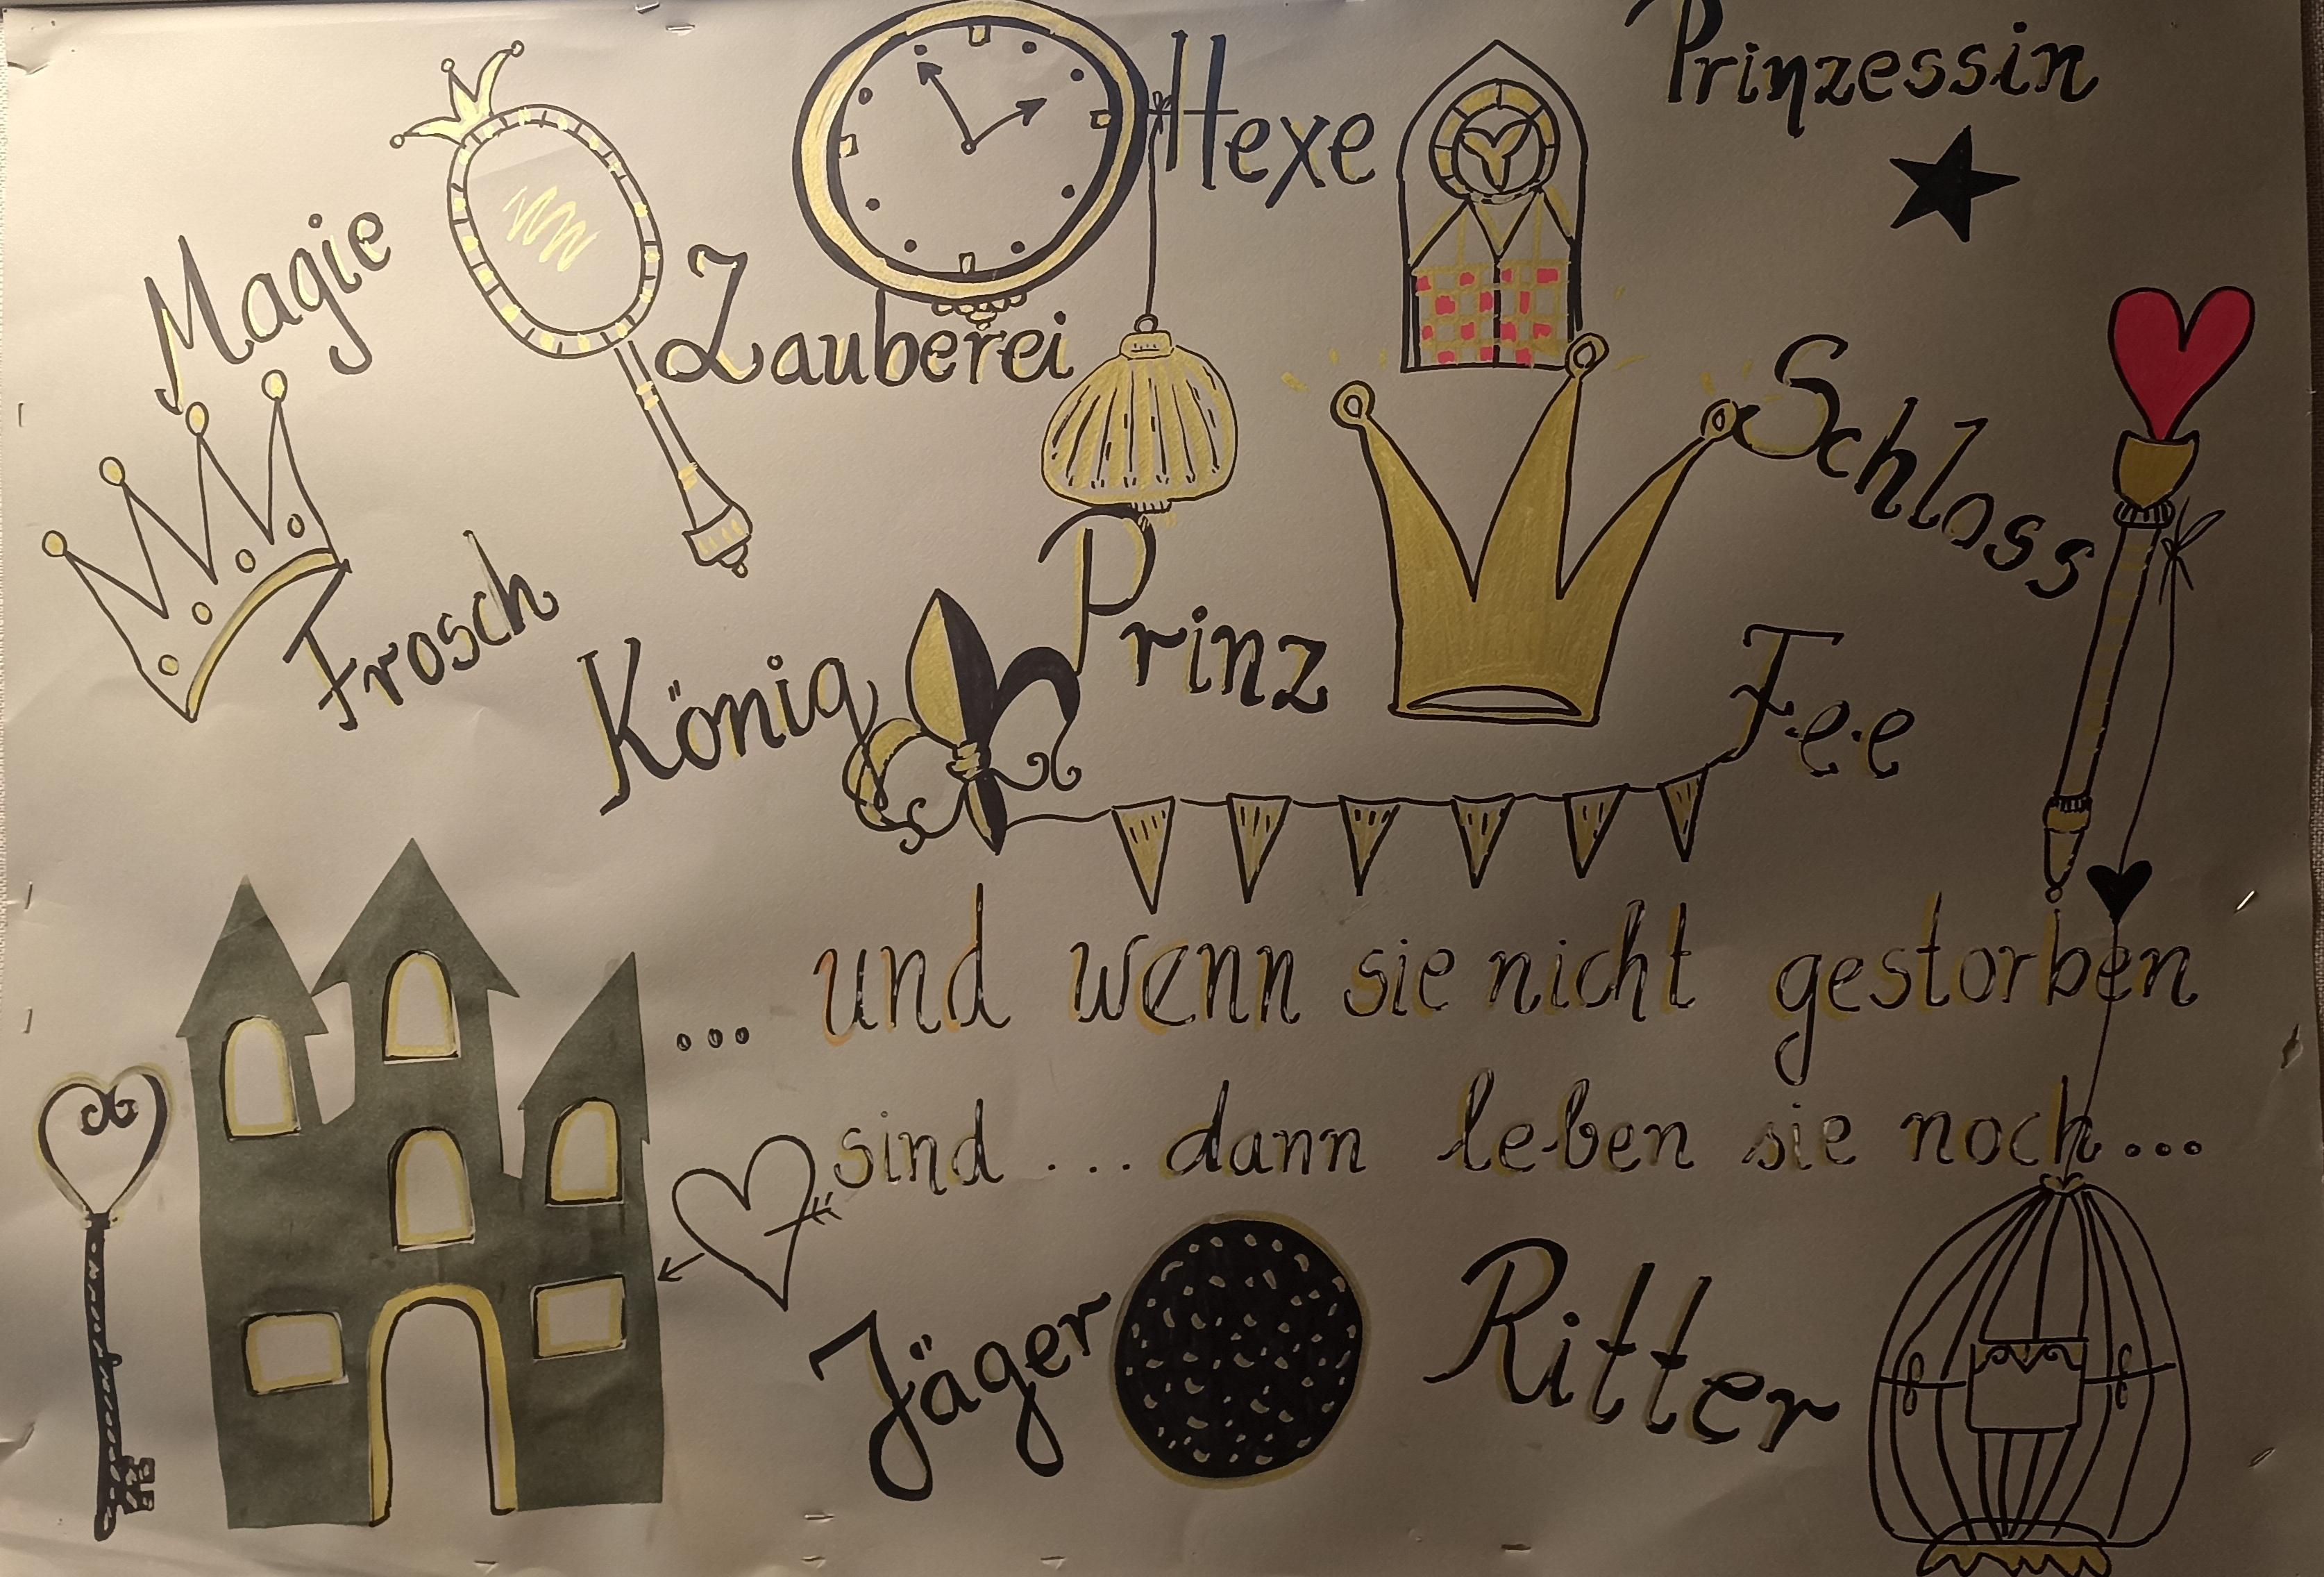 Prinzessin
Hexe
Magie
Zauberei
Schloss
Frosch
Prinz
König
Fee
... und wenn sie nicht gestorben
sind ... dann leben sie noch ...
Jäger
Ritter